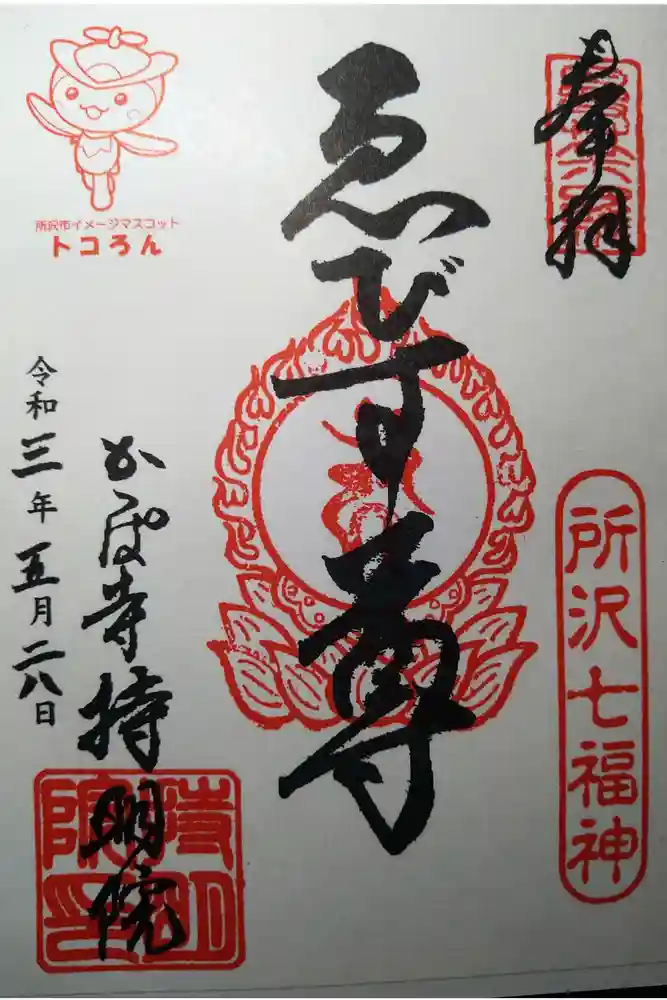 奉拝
所沢七福神
ゑびす尊
所沢市イメージマスコット
トコろん
かっぱ寺持明院
令和三年五月二八日
持明院印